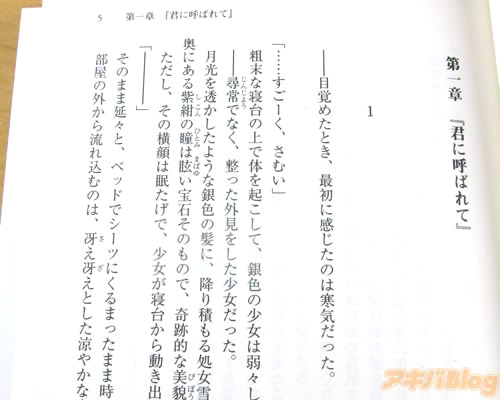 5　第一章　『君に呼ばれて』
第一章　『君に呼ばれて』
1
――目覚めたとき、最初に感じたのは寒気だった。
「……すごーく、さむい」
粗末な寝台の上で体を起こして、銀色の少女は弱々し
――尋常でなく、整った外見をした少女だった。
月光を透かしたような銀色の髪に、降り積もる処女雪
奥にある紫紺の瞳は眩い宝石そのもので、奇跡的な美貌
ただし、その横顔は眠たげで、少女が寝台から動き出
「――――」
そのまま延々と、ベッドでシーツにくるまったまま時
部屋の外から流れ込むのは、冴え冴えとした涼やかな
アキバBlog